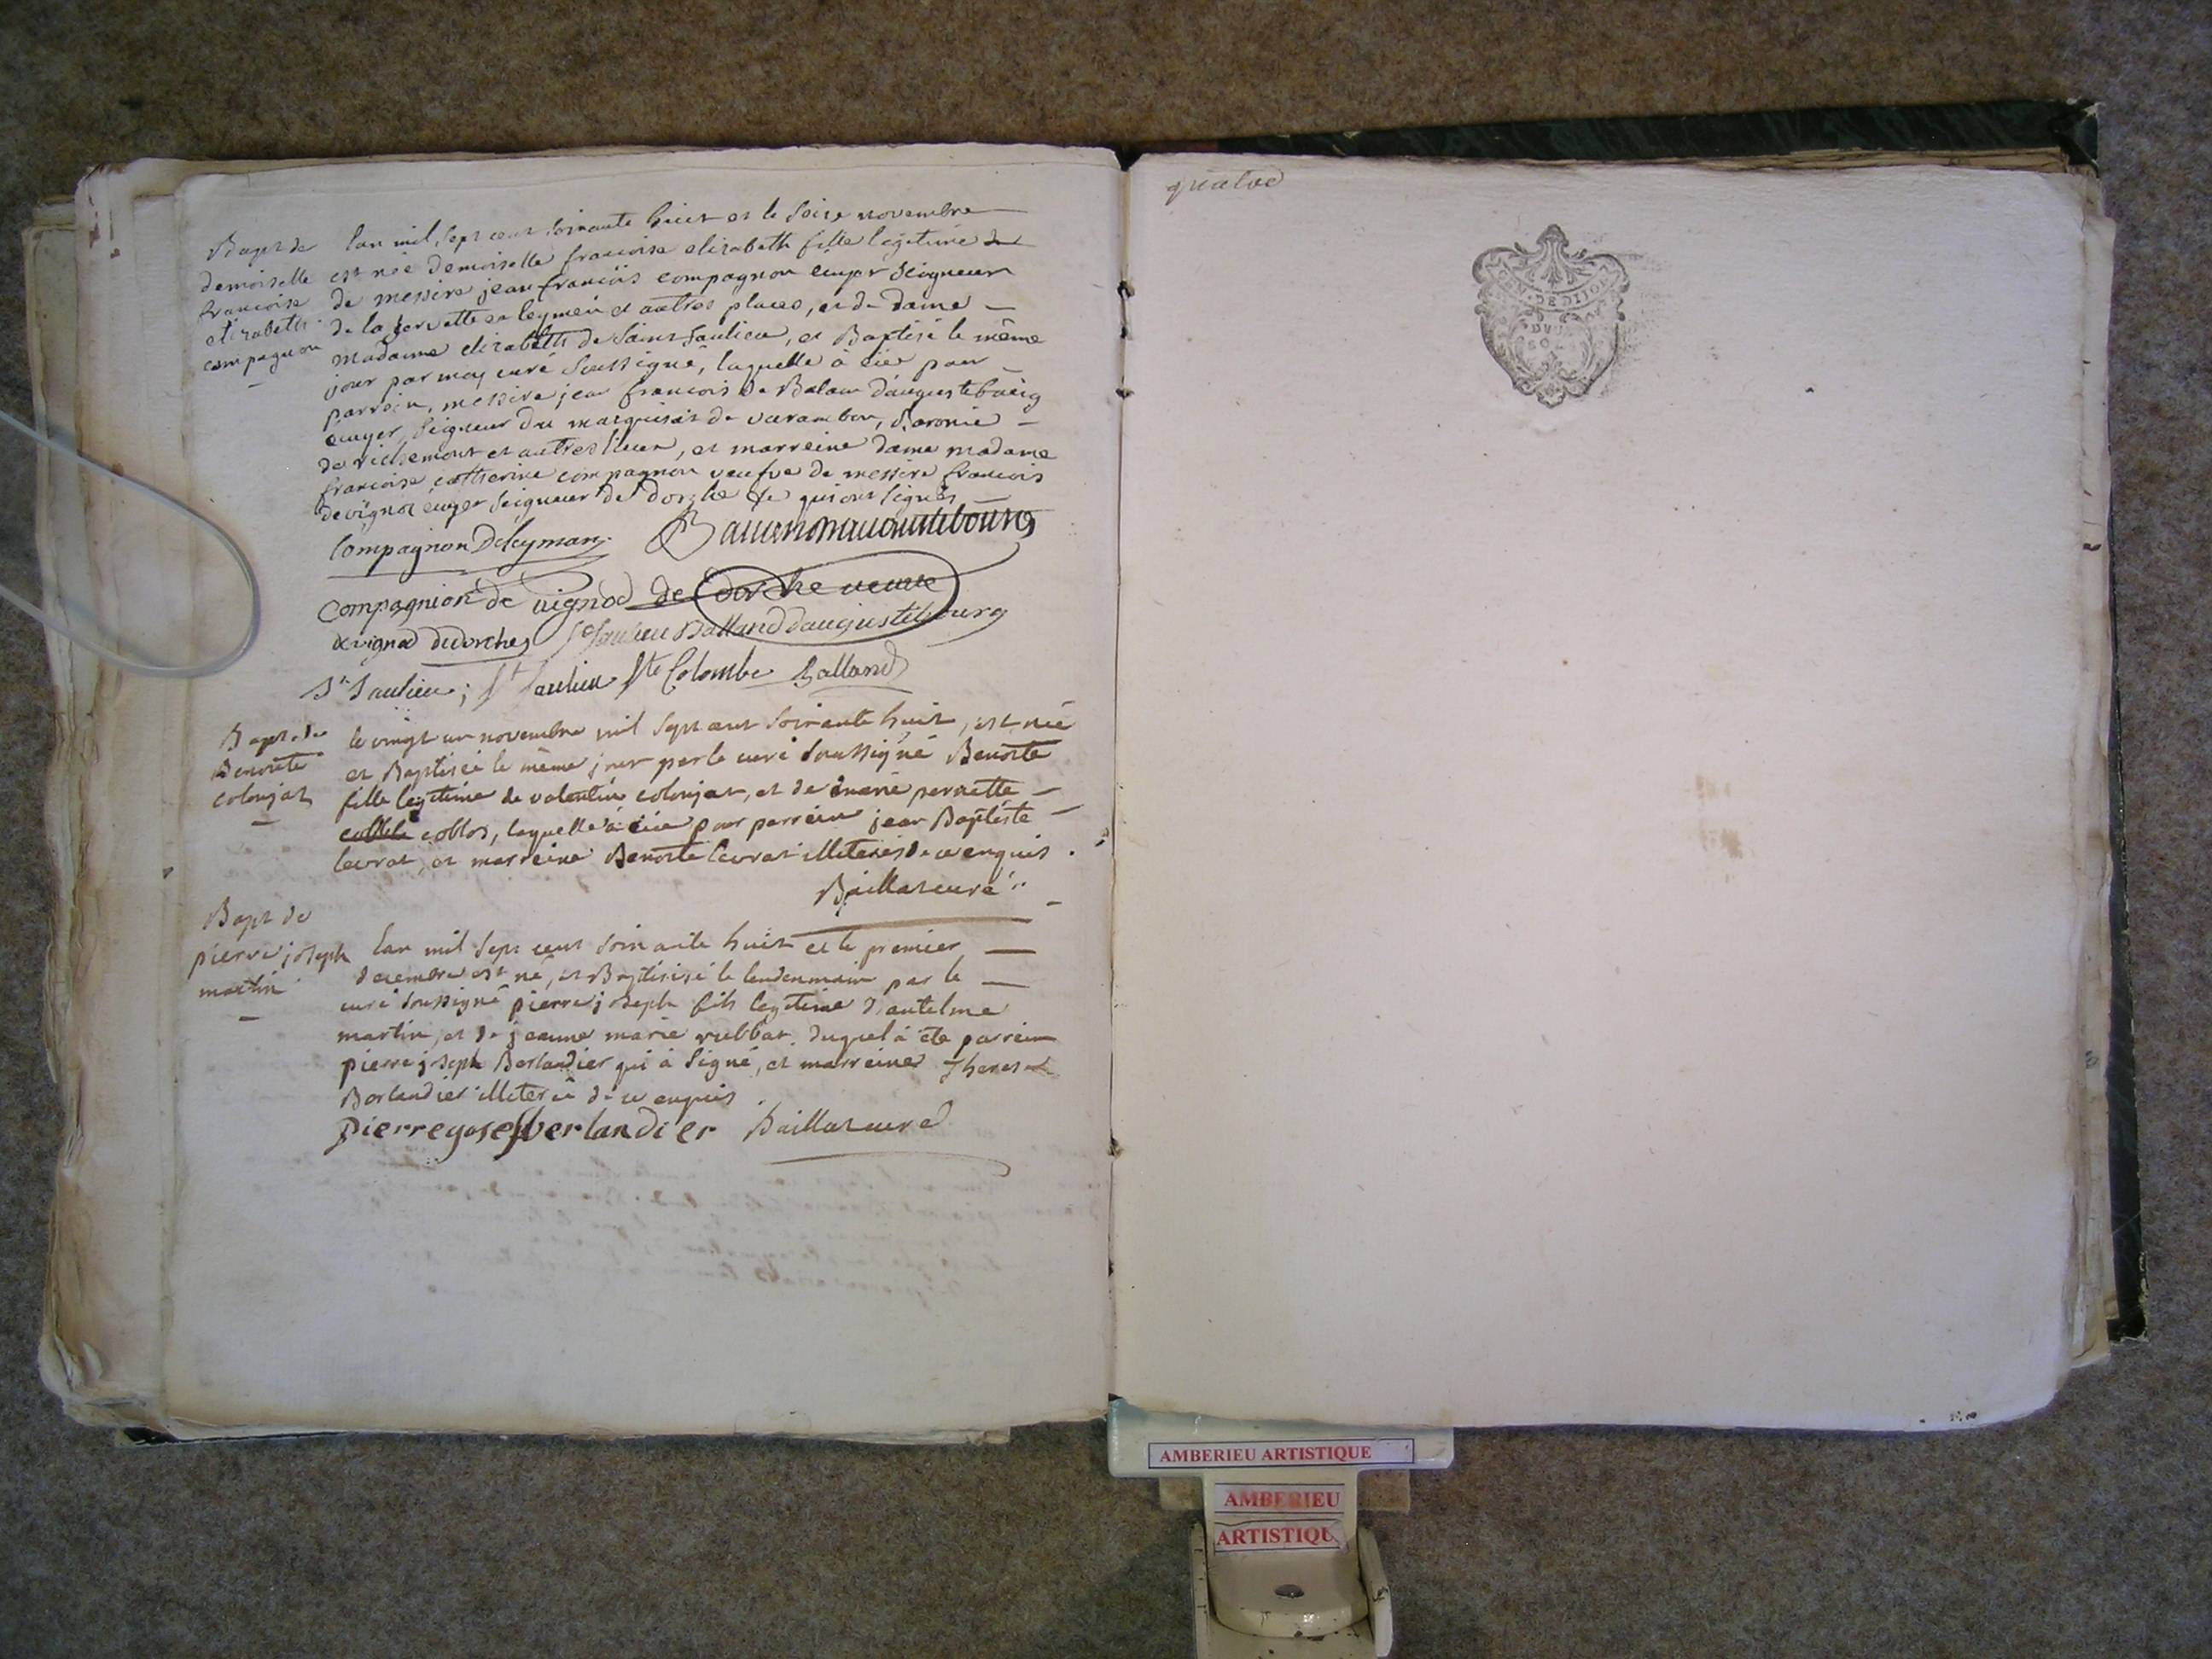 Bapt de
demoiselle
francoise
elizabeth
compagnon
lan mil sept cent soixante huit et le seize novembre
est née demoiselle francoise elizabeth fille legitime
de messire jean francois compagnon ecuyer seigneur
de la servette leymen et autres places, et de dame
madame elizabeth de saint saulieu, et Baptisé le même
jour par moy curé soussigné, laquelle à eüe pour
parrein, messire jean francois de Balan d'augustebourg
ecuyer, seigneur du marquisat de varambon, Baronie
de richemont et autres lieux, et marreine dame madame
francoise catherine compagnon veufve de messire francois
devignod ecuyer seigneur de dorche &c qui ont signés
Compagnon Deleyman
compagnion de vignod de dorche veuve
devignod dedorches St Saulieu Balland daugustebourg
St Saulieu; St Saulieu Ste Colombe Balland
Bapt. de
Benoite
colonjat
le vingt un novembre mil sept cent soixante huit, est née
et Baptisée le même jour par le curé soussigné Benoite
fille legitime de valentin colonjat, et de marie pernette
collos, laquelle à eüe pour parrein jean Baptiste
levrat, et marreine Benoite levrat illiterés de ce enquis.
Baillat curé
Bapt de
pierre joseph
martin
lan mil sept cent soixante huit et le premier
decembre est né, et Baptisisé le lendemain par le
curé soussigné pierre joseph fils legitime d'antelme
martin, et de jeanne marie rubbat. duquel à ete parrein
pierre joseph Berlandier qui à signé, et marreine therese
Berlandier illiterée de ce enquis.
pierre yoseph verlandier Baillat curé
quatre
AMBERIEU ARTISTIQUE
AMBERIEU
ARTISTIQU